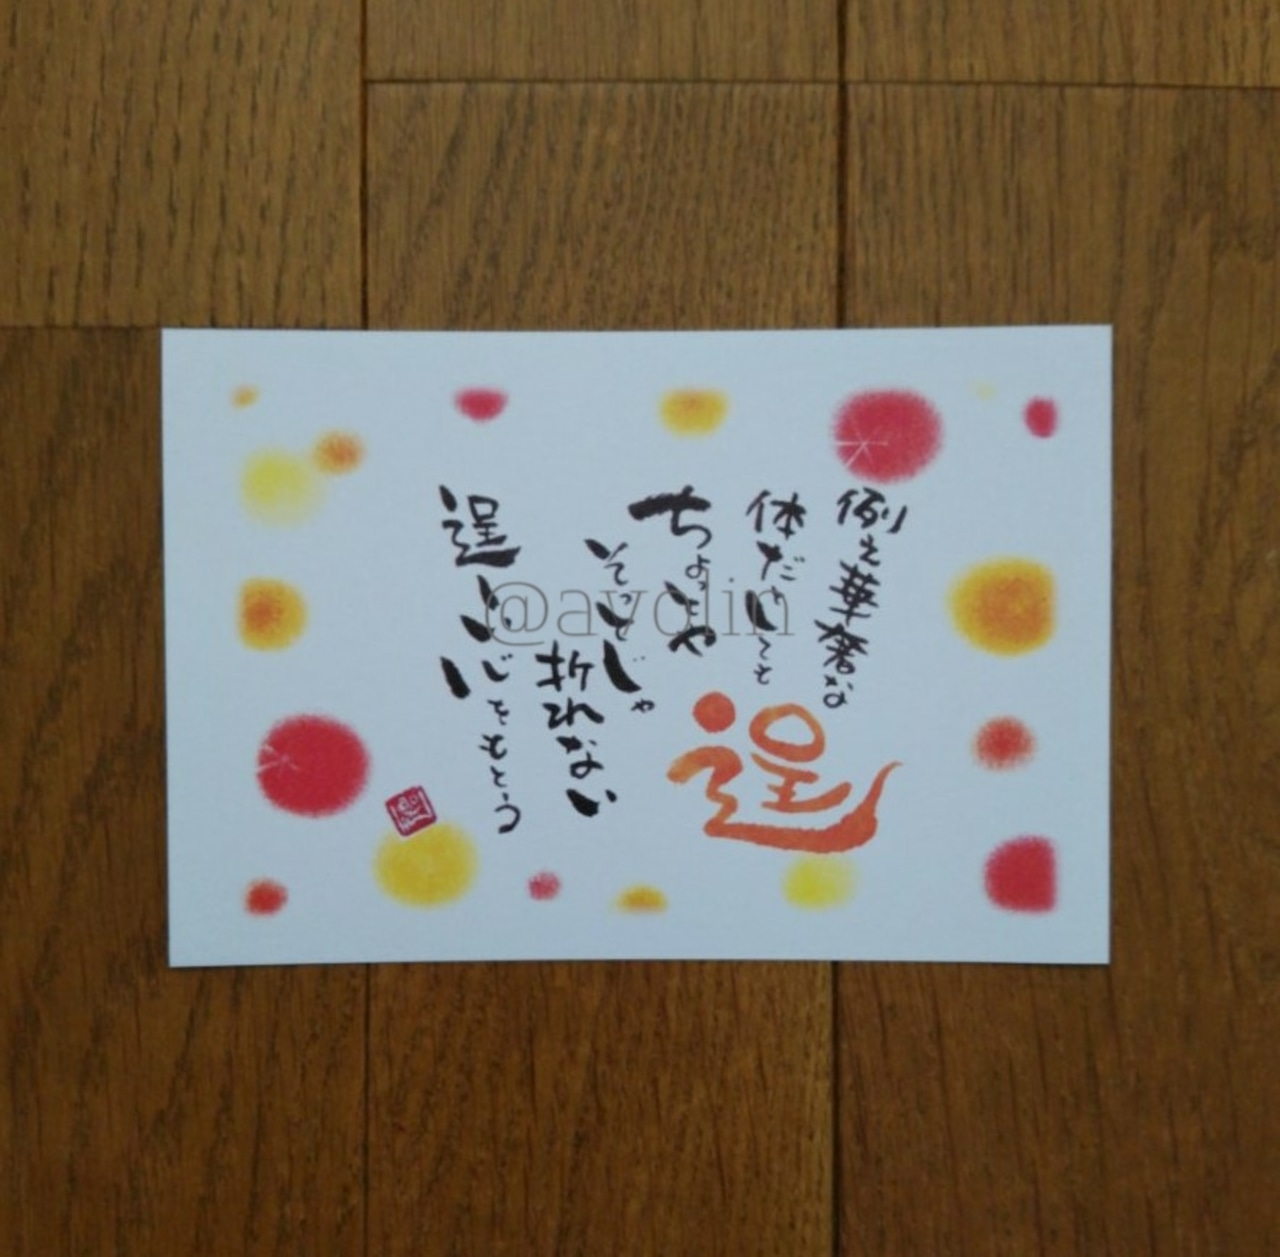 例え華奢な
体だとしても
ちょっとや
そっとじゃ
折れない
逞しい
心をもとう
逞
@ayolin